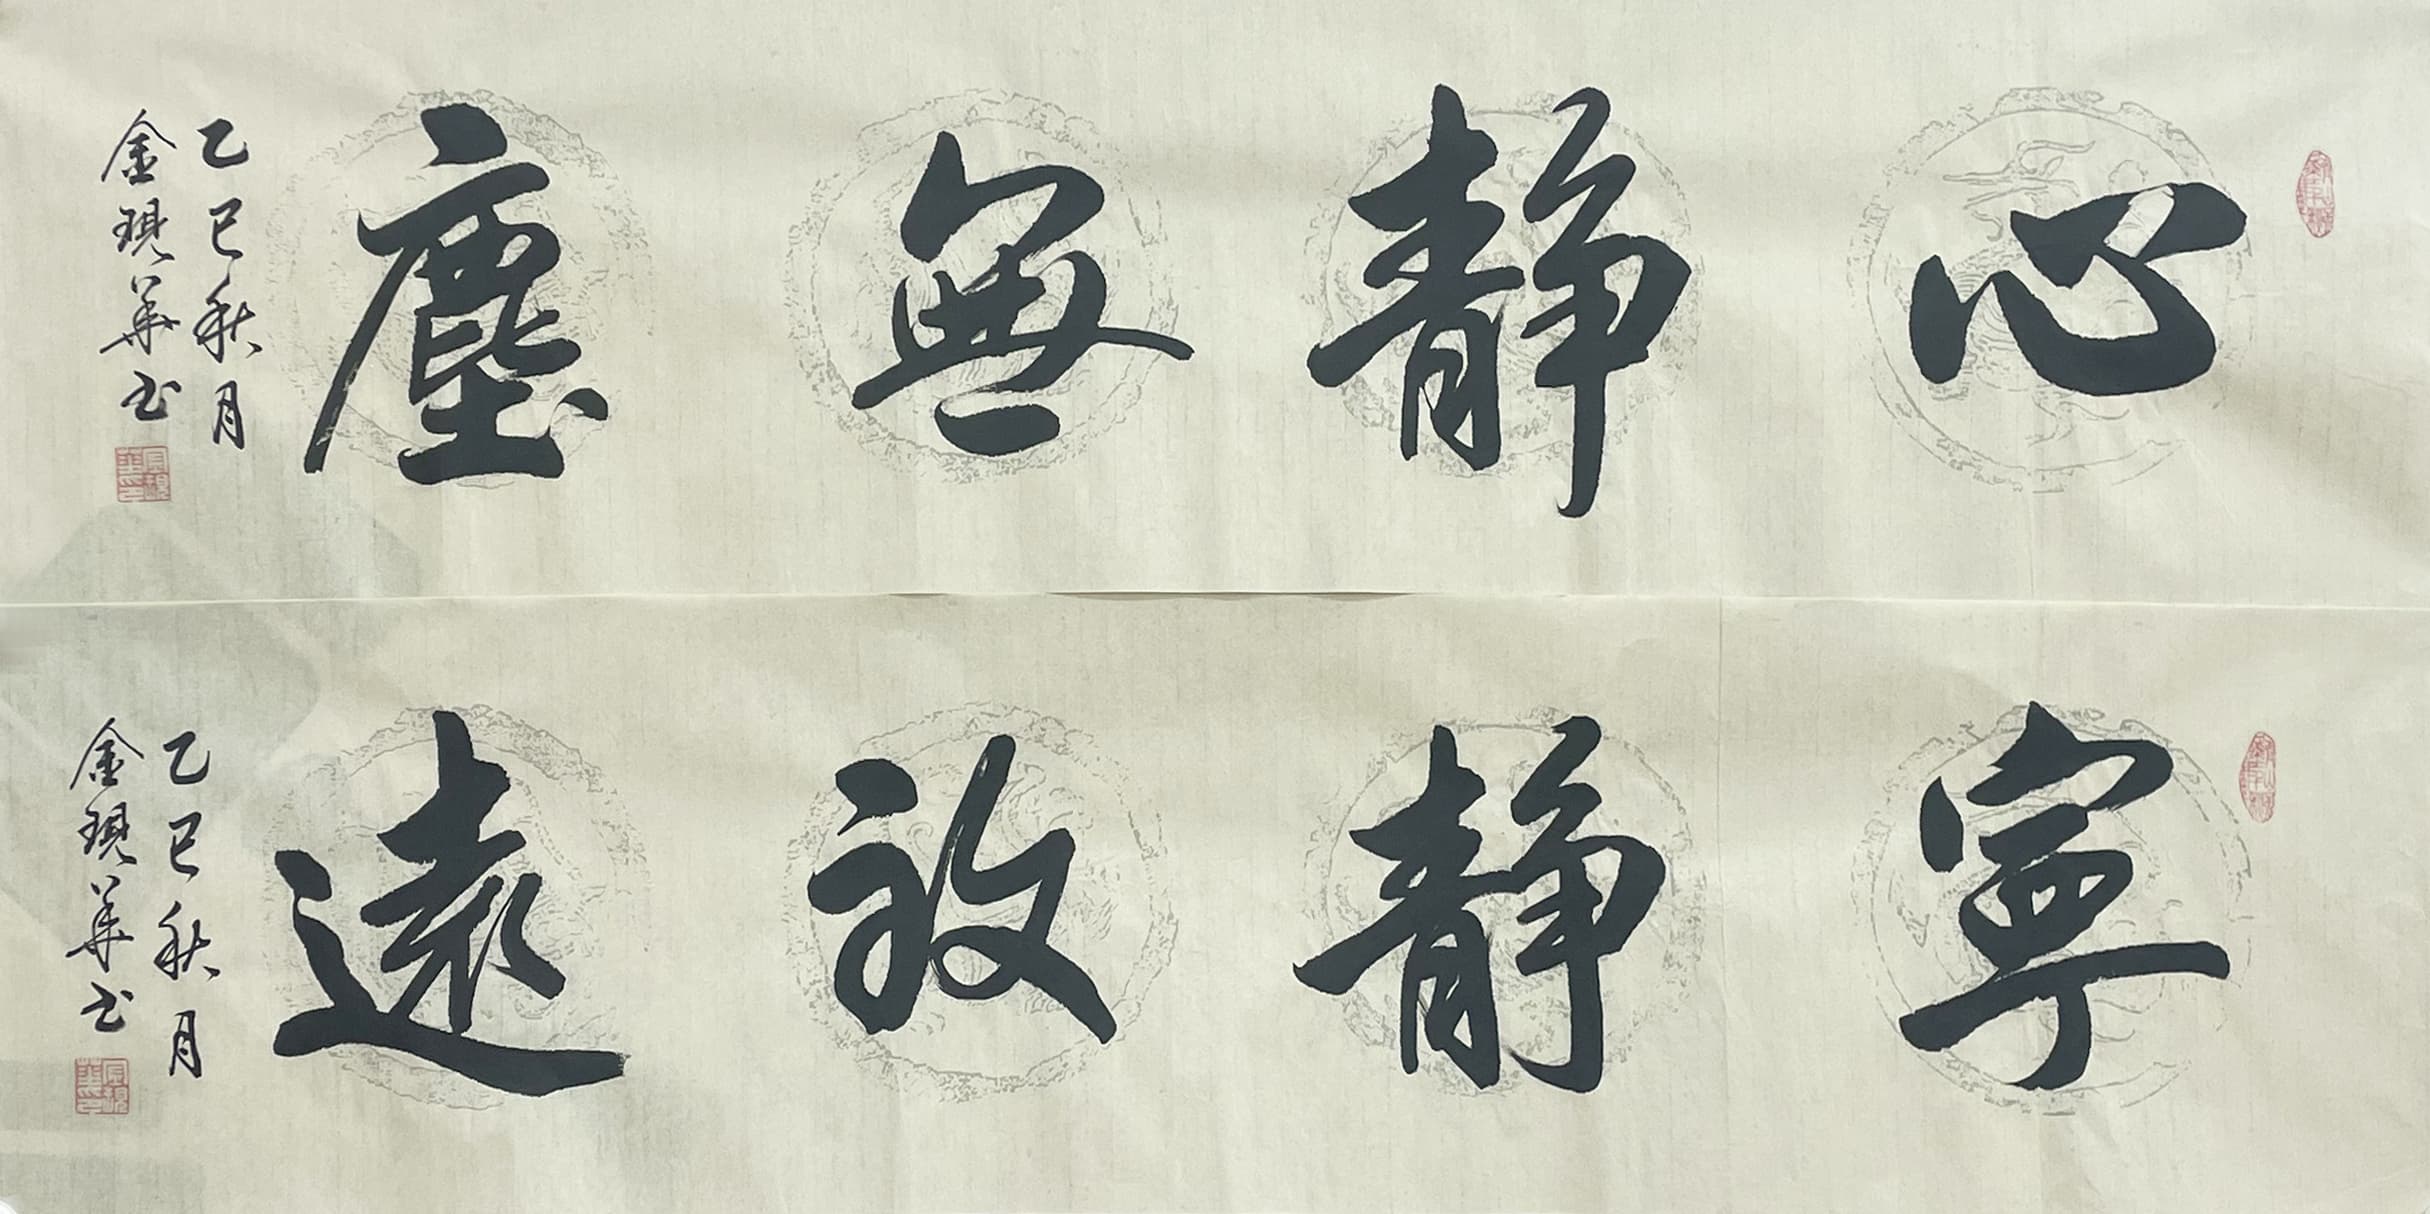 心靜無塵
乙巳秋月
金現華书
寧靜致遠
乙巳秋月
金現華书